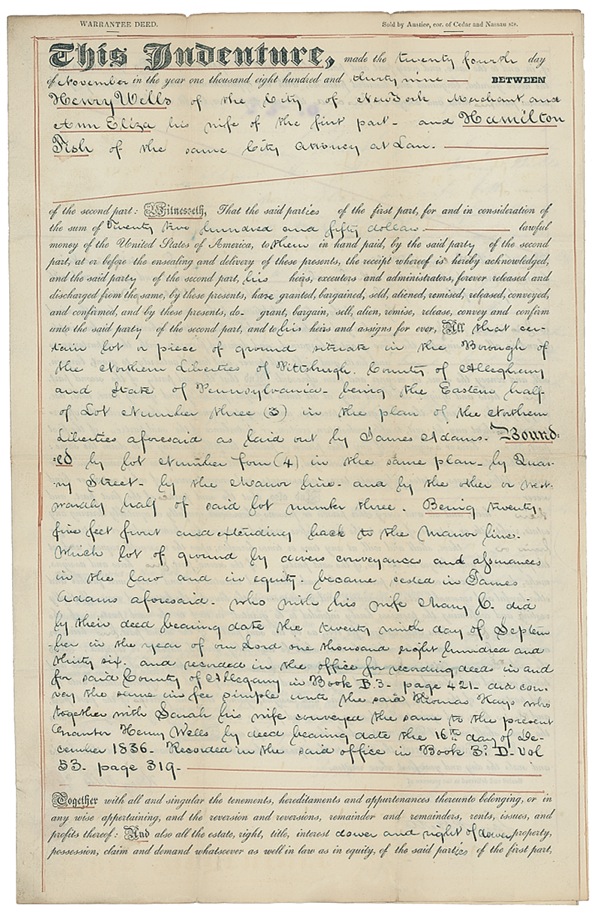 WARRANTEE DEED. Sold by Austice, cor. of Cedar and Nassau sts.
This Indenture, made the twenty fourth day
of November in the year one thousand eight hundred and thirty nine BETWEEN
Henry Wells of the City of New York Merchant and
Ann Eliza his wife of the first part - and Hamilton
Fish of the same City Attorney at Law.
of the second part: Witnesseth, That the said parties of the first part, for and in consideration of
the sum of Twenty two hundred and fifty dollars lawful
money of the United States of America, to them in hand paid, by the said party of the second
part, at or before the ensealing and delivery of these presents, the receipt whereof is hereby acknowledged,
and the said party of the second part, his heirs, executors and administrators, forever released and
discharged from the same, by these presents, have granted, bargained, sold, aliened, remised, released, conveyed,
and confirmed, and by these presents, do - grant, bargain, sell, alien, remise, release, convey and confirm
unto the said party of the second part, and to his heirs and assigns for ever, All that cer-
tain lot or piece of ground situate in the Borough of
the Northern Liberties of Pittsburgh. County of Allegheny
and State of Pennsylvania - being the Eastern half
of Lot Number three (3) in the plan of the Northern
Liberties aforesaid as laid out by James Adams. Bound-
ed by lot Number four (4) in the same plan - by Quar-
ry Street - by the Manor line - and by the other or West-
wardly half of said lot number three. Being twenty
five feet front and extending back to the Manor line.
Which lot of ground by divers conveyances and assurances
in the law and in equity - became vested in James
Adams aforesaid - who with his wife Mary C. did
by their deed bearing date the twenty ninth day of Septem
ber in the year of our Lord one thousand eight hundred and
thirty six - and recorded in the office for recording deed in and
for said County of Allegany in Book B.3 - page 421 - did con-
vey the same in fee simple unto the said Thomas Hays who
together with Sarah his wife conveyed the same to the present
Grantor Henry Wells by deed bearing date the 16th day of De-
cember 1836 - Recorded in the said office in Book 3. D - Vol
53. page 319 -
Together with all and singular the tenements, hereditaments and appurtenances thereunto belonging, or in
any wise appertaining, and the reversion and reversions, remainder and remainders, rents, issues, and
profits thereof: And also all the estate, right, title, interest dower and right of dower, property,
possession, claim and demand whatsoever as well in law as in equity, of the said parties of the first part,